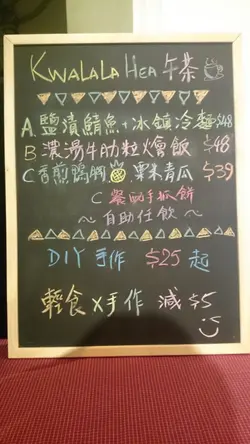 KWALALA HEA 午茶
A. 鹽漬鯖魚+冰鎮冷麵 $48
B 濃湯牛肋粒燴飯 $48
C 香煎鴨胸 粟米青瓜 $39
C 餐配手抓餅
~ 自助任飲 ~
DIY 手作 $25 起
輕食 X 手作 減 $5